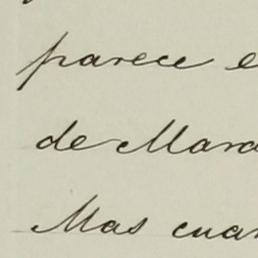 parece e
de Mara
Mas cuan